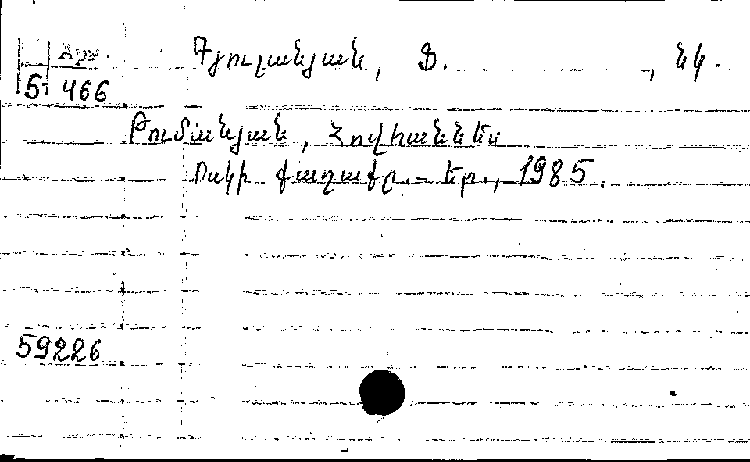 Գյուլանյան, Ֆ. , նկ.
5 466
Թումանյան, Հովհաննես
Ոսկի քաղաքը. – Եր., 1985.
59226